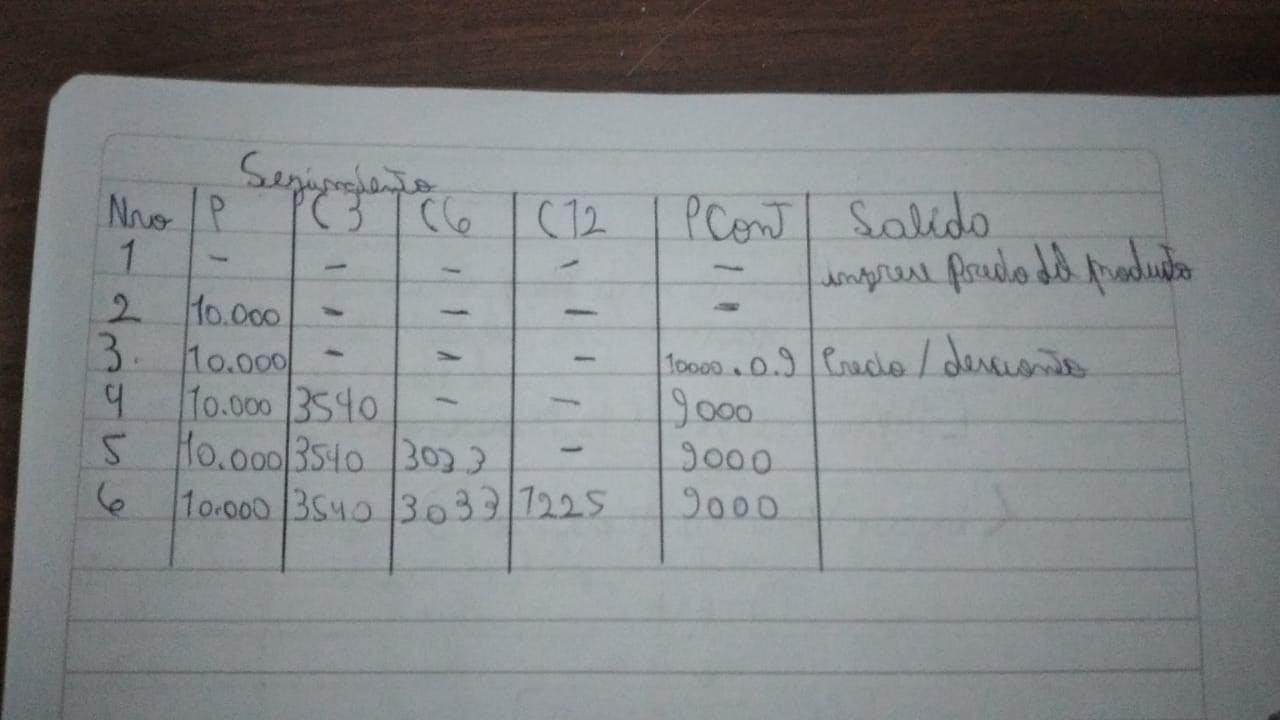 Seguimiento
Nro P C3 C6 C12 PConT Salida
1 - - - - - ingrese Precio del producto
2 10.000 - - - -
3. 10.000 - - - 10000.0.9 Precio/descuento
4 10.000 3540 - - 9000
5 10.000 3540 3033 - 9000
6 10.000 3540 3033 1225 9000